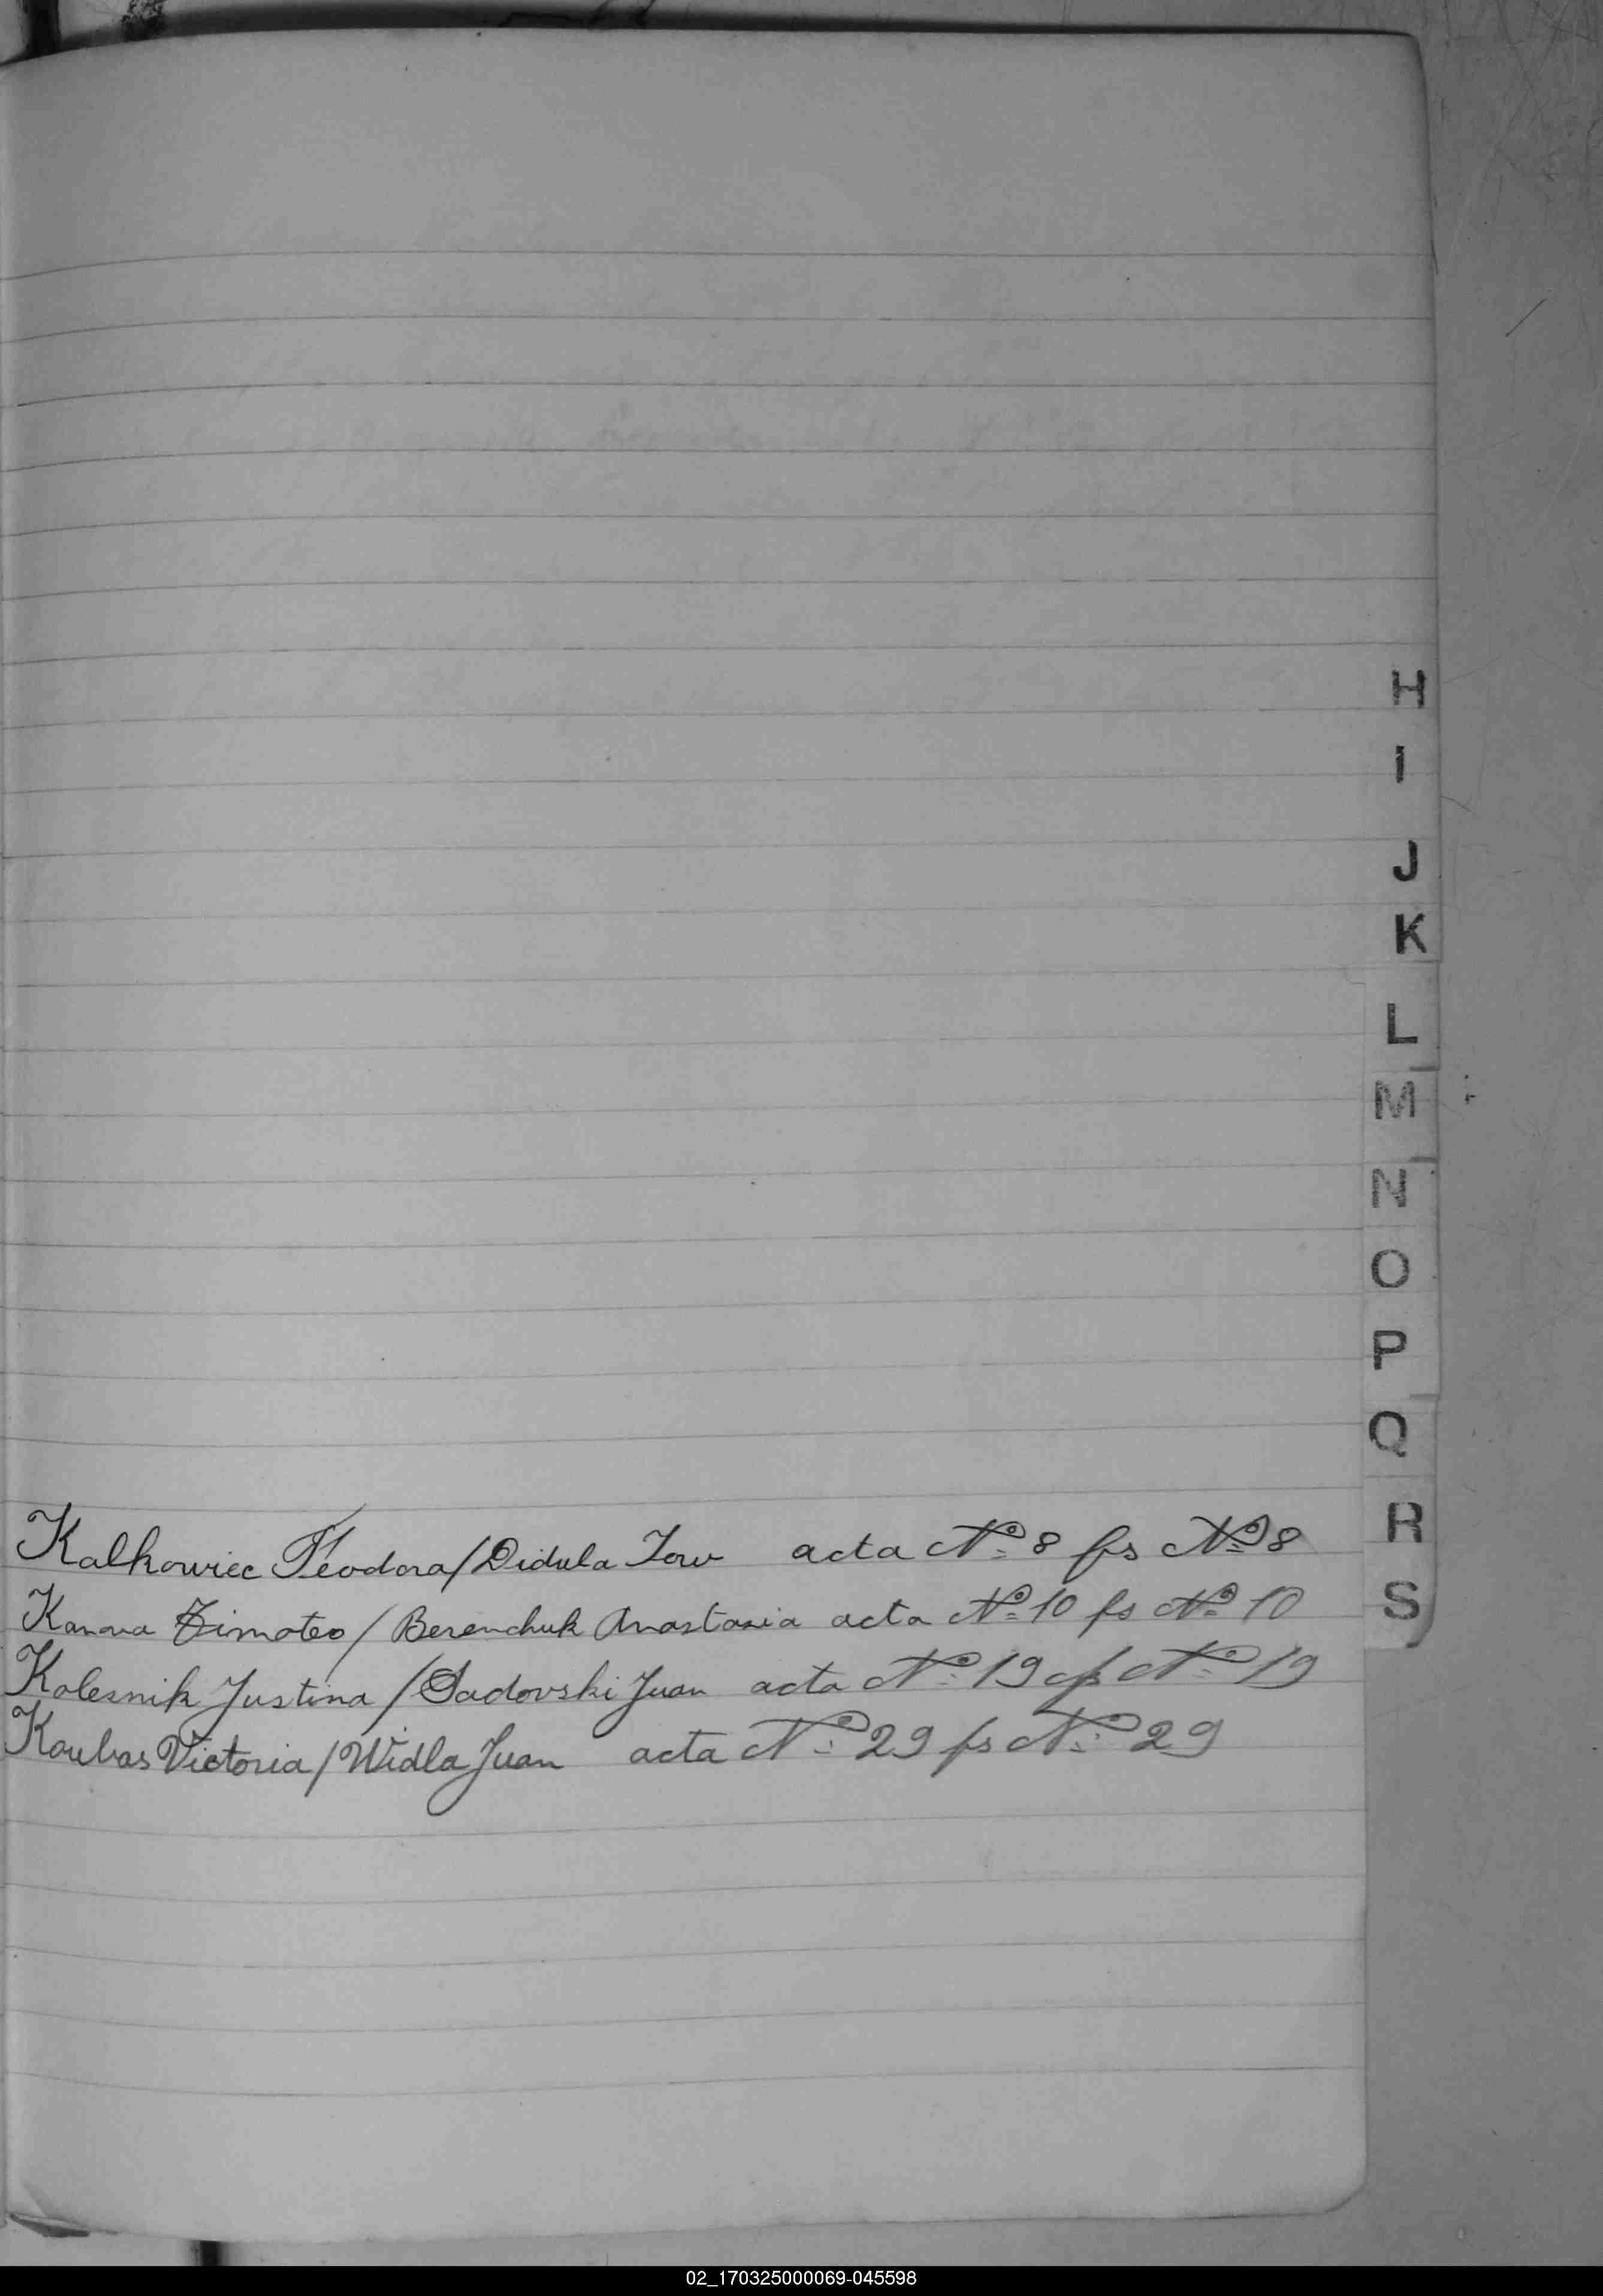 H
I
J
K
L
M
N
O
P
Q
R
S
Kalkowiec Teodora / Didula acta Nº 8 fs Nº 8
Kanava Timoteo / Berenchuk Anastasia acta Nº 10 fs Nº 10
Kolesnik Justina / Sadovski Juan acta Nº 19 fs Nº 19
Koubas Victoria / Widla Juan acta Nº 29 fs Nº 29
02_170325000069-045598